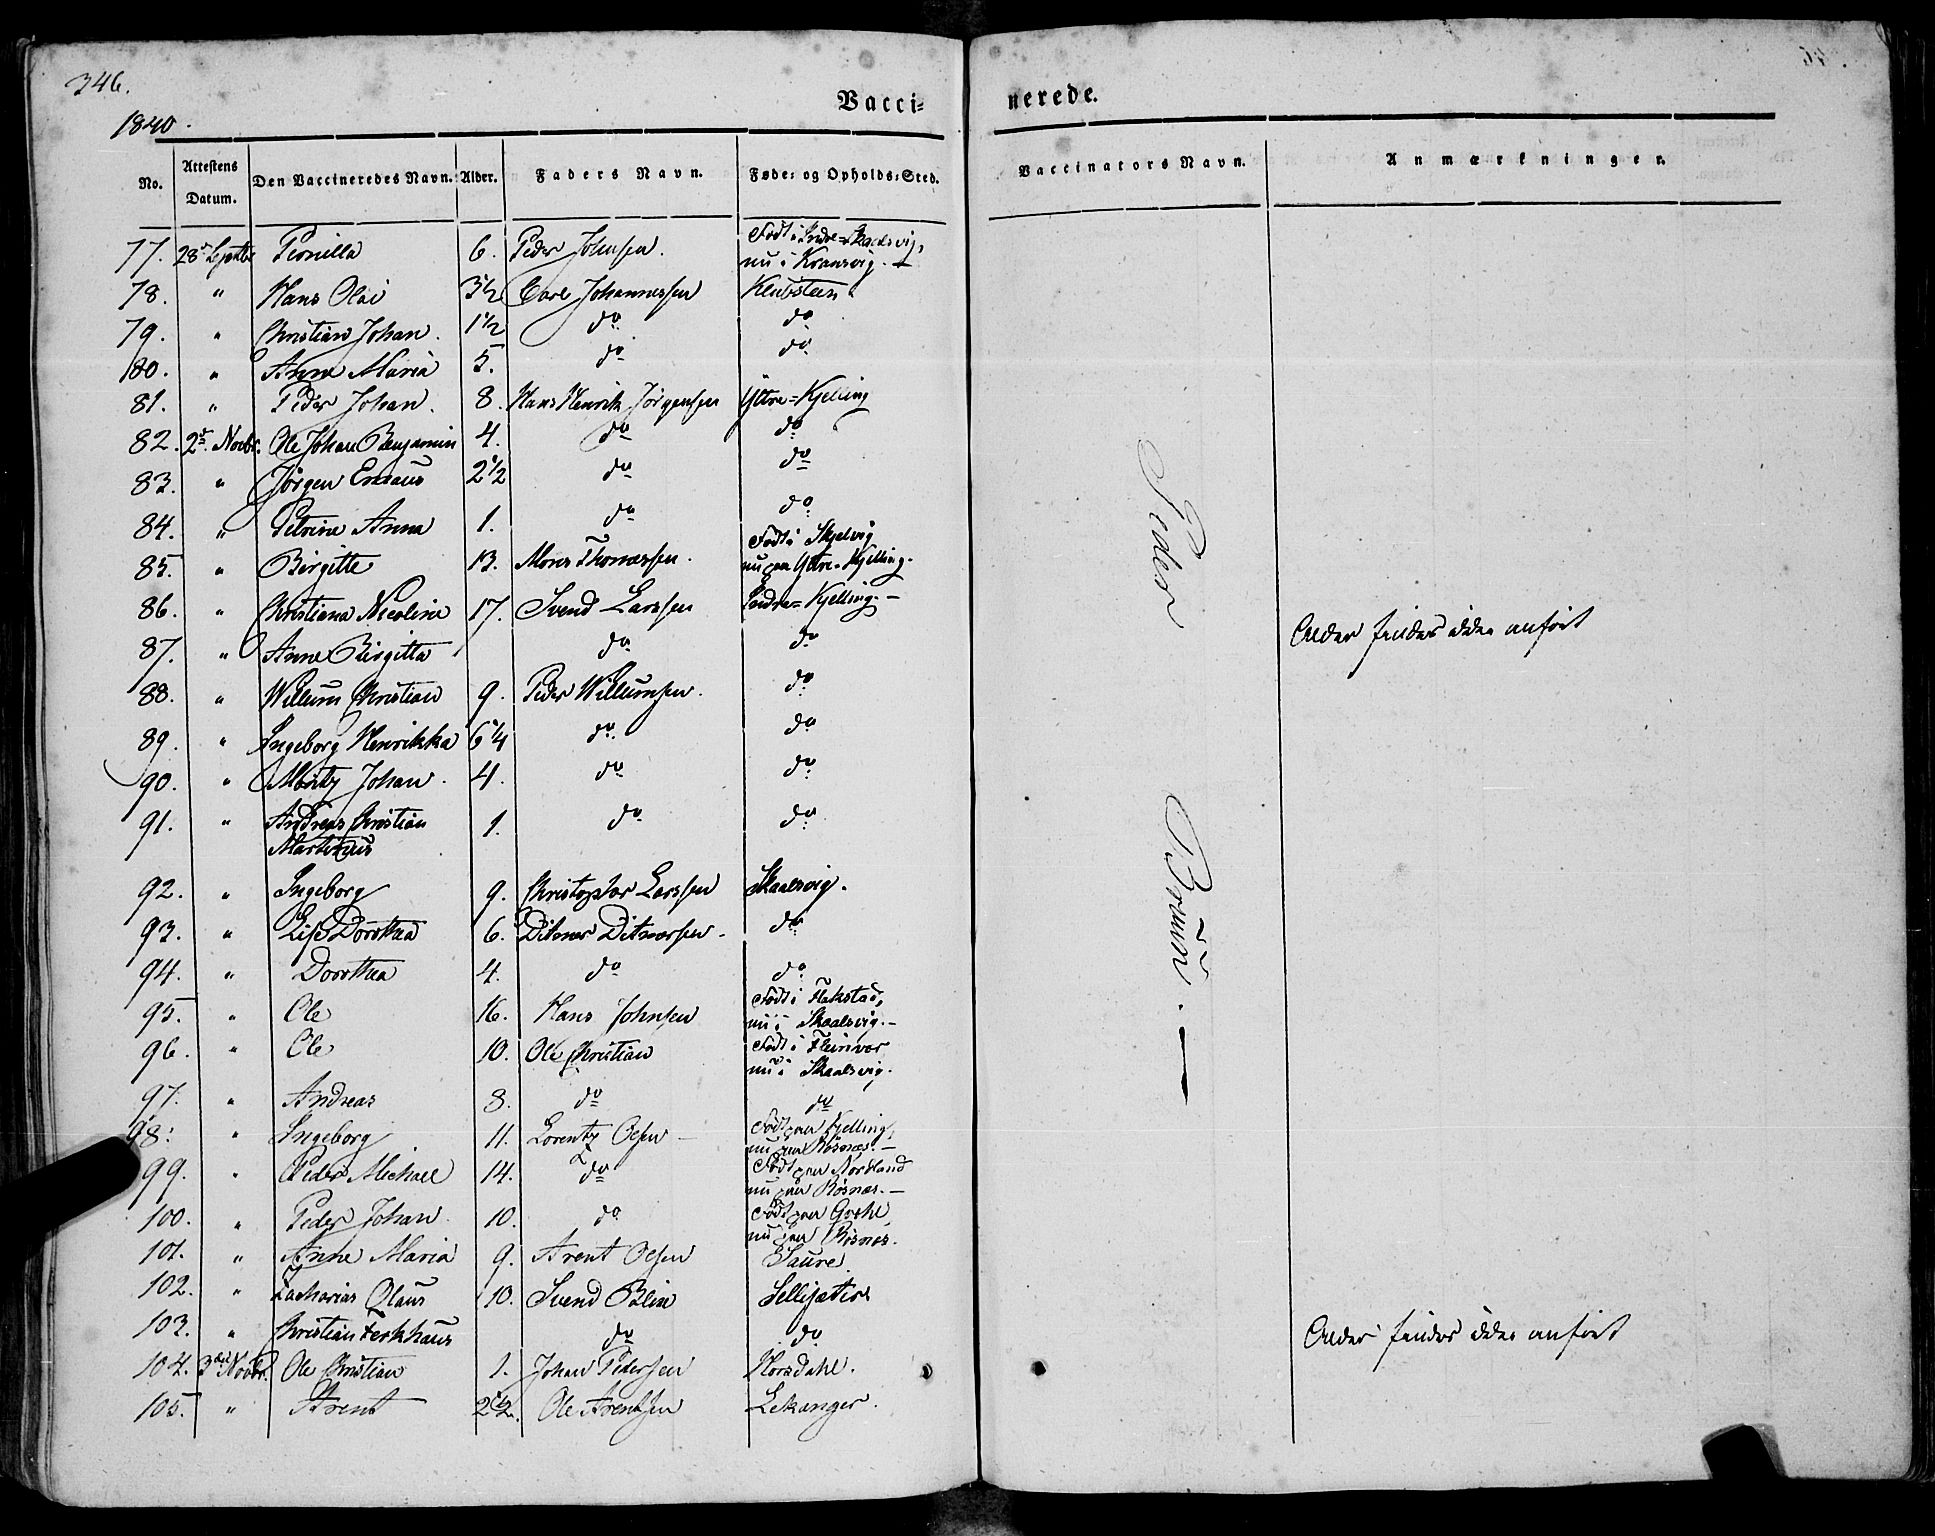 346.
Vacci= nerede.
1840.
No. Attestens Datum. Den Vaccineredes Navn. Alder. Faders Navn. Føde= og Opholds=Sted. Vaccinators Navn. Anmærkninger.
77. 28de Septbr Pernilla 6. Peder Johnsen. Født i Indre=Skaalsvig,
nu i Kransvig. —
78. " Hans Olai 3 1/2 Carl Johannessen Klubsteen
79. " Christian Johan. 1 1/2 do do
80. " Anne Maria 5. do do
81. " Peder Johan. 8. Hans Henrik Jørgensen Yttre=Kjelling
82. 2de Novbr. Ole Johan Benjamin 4. do do
83. " Jørgen Emaus 2 1/2 do do
84. " Petrine Anna 1. do do
85. " Birgitte 13. Mons Thomassen. Født i Skjelvig
nu paa Yttre=Kjelling.
86. " Christiana Nicolina 17. Svend Larssen Indre=Kjelling. —
87. " Anne Birgitta do do Alder findes ikke anført
88. " Willum Christian 9. Peder Willumsen. do
89. " Ingeborg Henrikka 6 1/4 do do
90. " Moritz Johan. 4. do do
91. " Andreas Christian 1. do do
Martinus
92. " Ingeborg 9. Christopher Larssen Skaalsvig.
93. " Lise Dorothea 6. Ditmar Ditmarsen. do
94. " Dorothea 4. do do
95. " Ole 16. Hans Johnsen Født i Flakstad,
nu i Skaalsvig. —
96. " Ole 10. Ole Christian Født i Fleinvær
nu i Skaalsvig.
97. " Andreas 8. do do
98. " Ingeborg 11. Lorentz Olsen — Født paa Kjelling,
nu paa Røsnæs. —
99. " Peder Michael 14. do Født paa Nordland
nu paa Røsnæs. —
100. " Peder Johan 10. do Født paa
nu paa Røsnæs.
101. " Anne Maria 9. Arent Olsen Saure.
102. " Zacharias Olaus 10. Svend Blix Sellisætter
103. " Christian Ferkhaus do do Alder findes ikke anført
104. 3die Novbr. Ole Christian 1. Johan Pedersen Horsdahl.
105. " Arent 2 1/2. Ole Arentsen Lekanger.
Peder Bruun. —